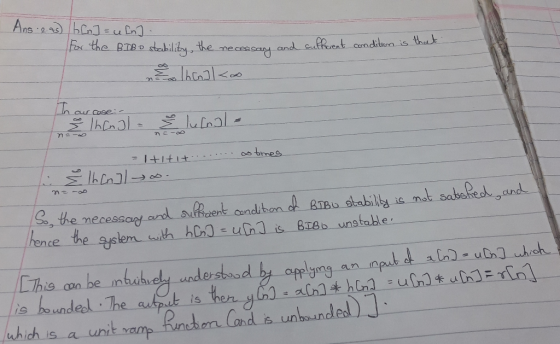 Ans:- a) h[n] = u[n].
For the BIBO stability, the necessary and sufficient condition is that
∞ Σ n=-∞ |h[n]| < ∞
In our case:-
∞ Σ n=-∞ |h[n]| = ∞ Σ n=-∞ |u[n]| =
= 1+1+1+ ........ ∞ times
∴ ∞ Σ n=-∞ |h[n]| → ∞.
So, the necessary and sufficient condition of BIBO stability is not satisfied, and
hence the system with h[n] = u[n] is BIBO unstable.
[This can be intuitively understood by applying an input of x[n] = u[n] which
is bounded. The output is then y[n] = x[n] * h[n] = u[n] * u[n] = r[n]
which is a unit ramp function (and is unbounded)].